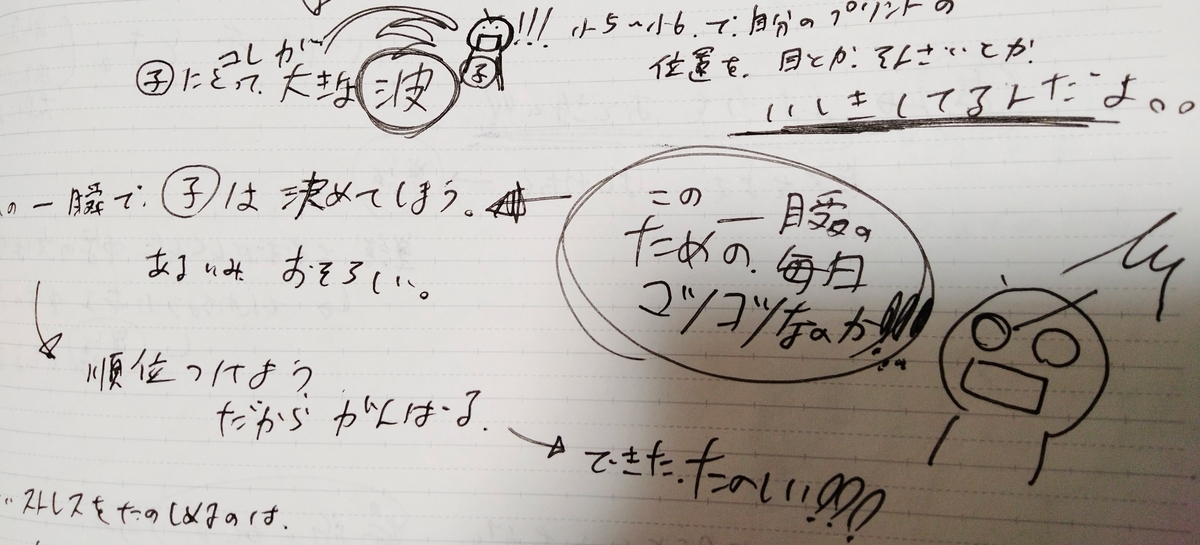 コレが
子にとって、大きな波
子
!!!
小5〜小6.で.自分のプリントの
位置を.目とか.そんざいとか.
いしきしてるんだよ。。
の一瞬で.子は決めてしまう。
あるいみ おそろしい。
この
一瞬の
ための.毎日
コツコツなのか!!!!
順位つけよう
だからがんばる.
できた.たのしい!!!!
ストレスをたのしめるのは.